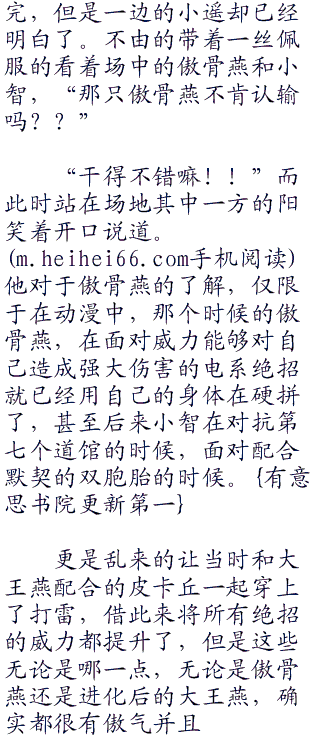 完，但是一边的小遥却已经
明白了。不由的带着一丝佩
服的看着场中的傲骨燕和小
智，“那只傲骨燕不肯认输
吗？？”
“干得不错嘛！！”而
此时站在场地其中一方的阳
笑着开口说道。
(m.heihei66.com手机阅读)
他对于傲骨燕的了解，仅限
于在动漫中，那个时候的傲
骨燕，在面对威力能够对自
己造成强大伤害的电系绝招
就已经用自己的身体在硬拼
了，甚至后来小智在对抗第
七个道馆的时候，面对配合
默契的双胞胎的时候。{有意
思书院更新第一}
更是乱来的让当时和大
王燕配合的皮卡丘一起穿上
了打雷，借此来将所有绝招
的威力都提升了，但是这些
无论是哪一点，无论是傲骨
燕还是进化后的大王燕，确
实都很有傲气并且